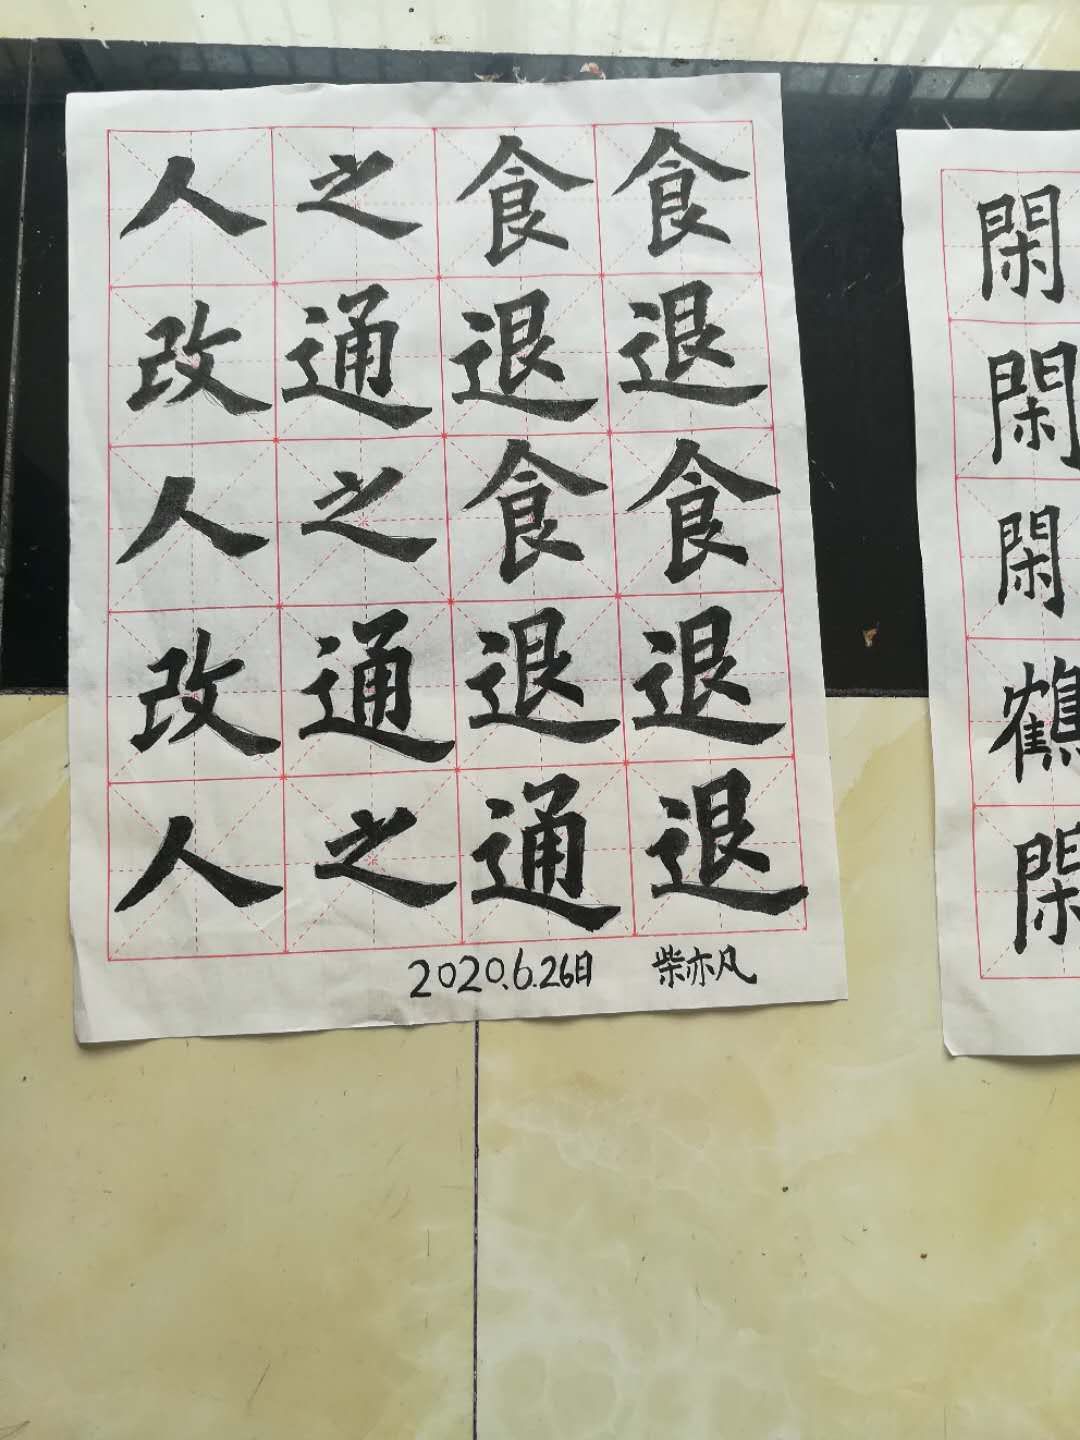 人之食食
改通退退
人之食食
改通退退
人之通退
2020.6.26日 柴亦凡
閑
閑
閑
鶴
閑